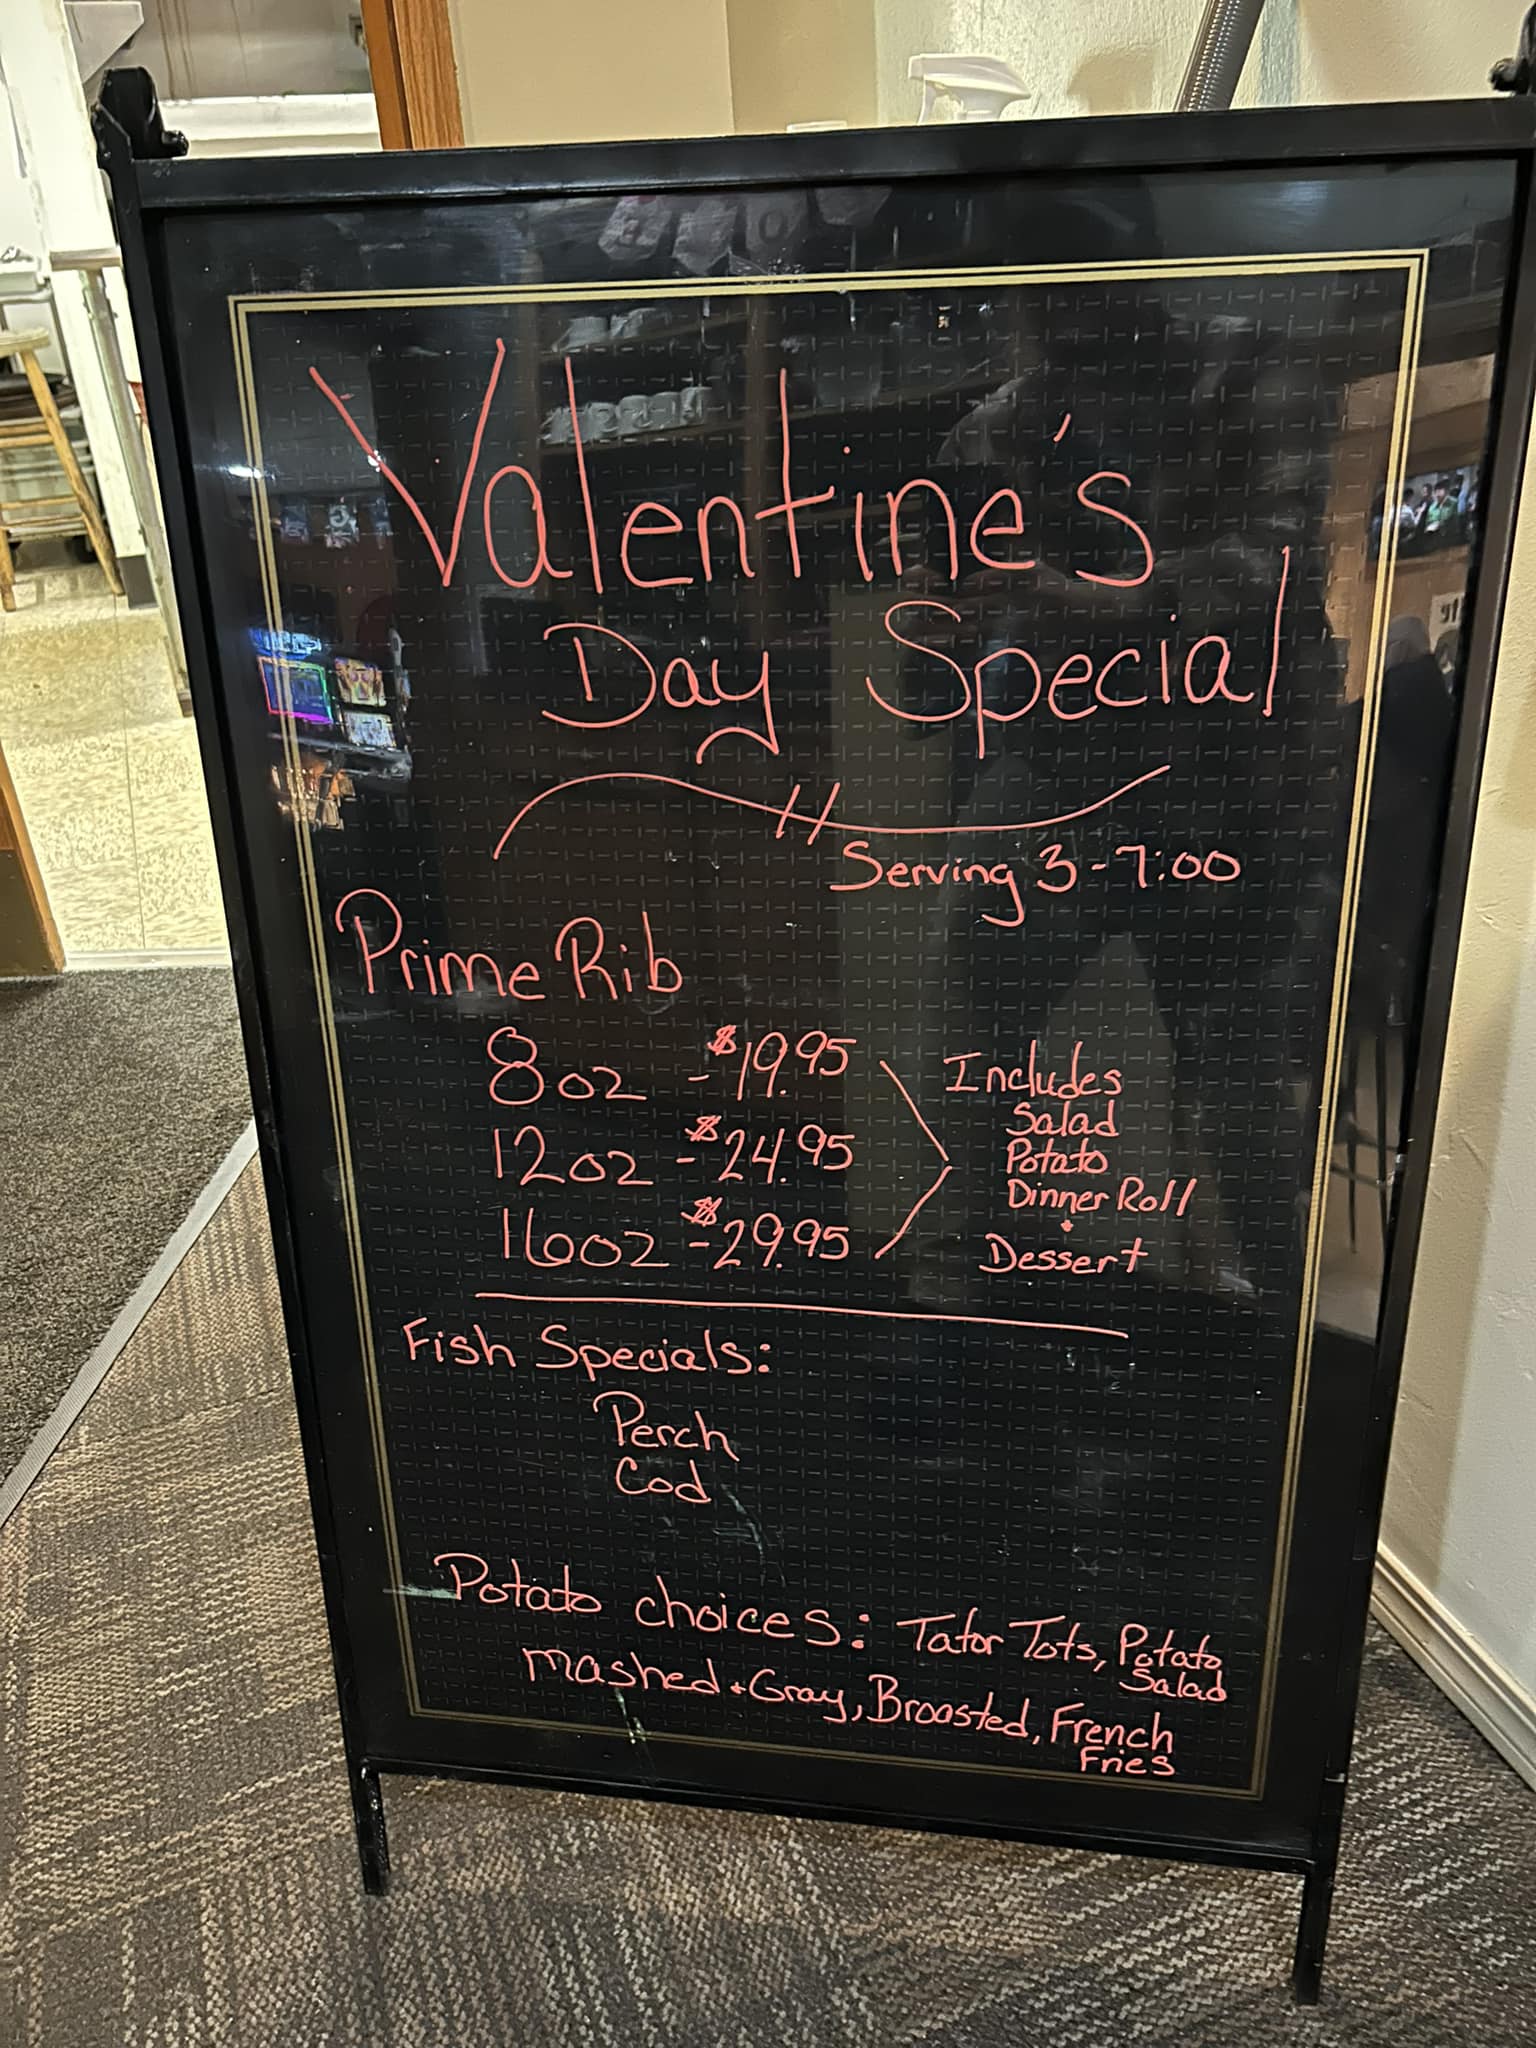 Valentine's
Day Special
Serving 3-7:00
Prime Rib
8oz - $19.95
12oz - $24.95
16oz - $29.95
Includes
Salad
Potato
Dinner Roll
+
Dessert
Fish Specials:
Perch
Cod
Potato choices: Tator Tots, Potato
Salad
mashed + Gravy, Broasted, French
Fries